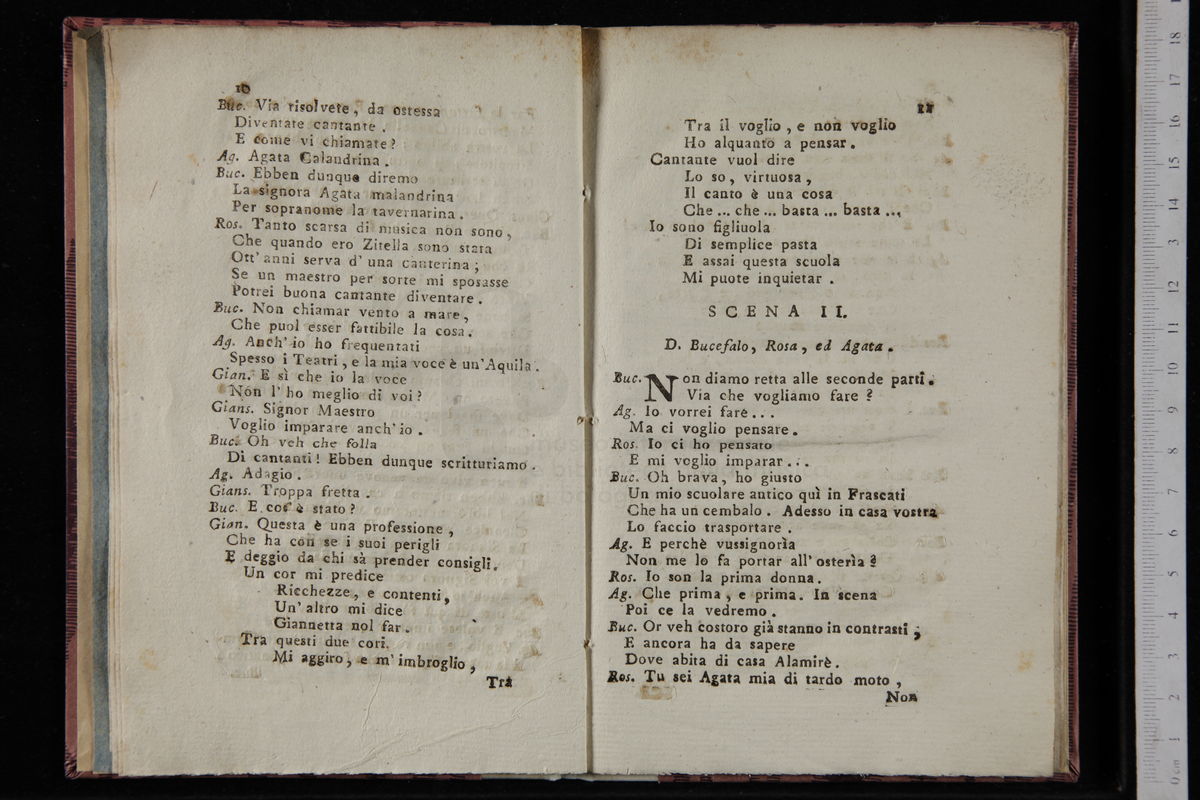 10
Buc. Via risolvete, da ostessa
Diventate cantante.
E come vi chiamate?
Ag. Agata Calandrina.
Buc. Ebben dunque diremo
La signora Agata malandrina
Per sopranome la tavernarina.
Ros. Tanto scarsa di musica non sono,
Che quando ero Zitella sono stata
Ott' anni serva d' una canterina;
Se un maestro per sorte mi sposasse
Potrei buona cantante diventare.
Buc. Non chiamar vento a mare,
Che puol esser fattibile la cosa.
Ag. Anch' io ho frequentati
Spesso i Teatri, e la mia voce è un' Aquila.
Gian. E sì che io la voce
Non l' ho meglio di voi?
Gians. Signor Maestro
Voglio imparare anch' io.
Buc. Oh veh che folla
Di cantanti! Ebben dunque scritturiamo.
Ag. Adagio.
Gians. Troppa fretta.
Buc. E cos' è stato?
Gian. Questa è una professione,
Che ha con se i suoi perigli
E deggio da chi sà prender consigli.
Un cor mi predice
Ricchezze, e contenti,
Un' altro mi dice
Giannetta nol far.
Tra questi due cori.
Mi aggiro, e m' imbroglio,
Tra
11
Tra il voglio, e non voglio
Ho alquanto a pensar.
Cantante vuol dire
Lo so, virtuosa,
Il canto è una cosa
Che ... che ... basta ... basta ...
Io sono figliuola
Di semplice pasta
E assai questa scuola
Mi puote inquietar.
SCENA II.
D. Bucefalo, Rosa, ed Agata.
Buc. Non diamo retta alle seconde parti.
Via che vogliamo fare?
Ag. Io vorrei fare...
Ma ci voglio pensare.
Ros. Io ci ho pensato
E mi voglio imparar...
Buc. Oh brava, ho giusto
Un mio scuolare antico quì in Frascati
Che ha un cembalo. Adesso in casa vostra
Lo faccio trasportare.
Ag. E perchè vussignorìa
Non me lo fa portar all' osterìa?
Ros. Io son la prima donna.
Ag. Che prima, e prima. In scena
Poi ce la vedremo.
Buc. Or veh costoro già stanno in contrasti;
E ancora ha da sapere
Dove abita di casa Alamirè.
Ros. Tu sei Agata mia di tardo moto,
Non